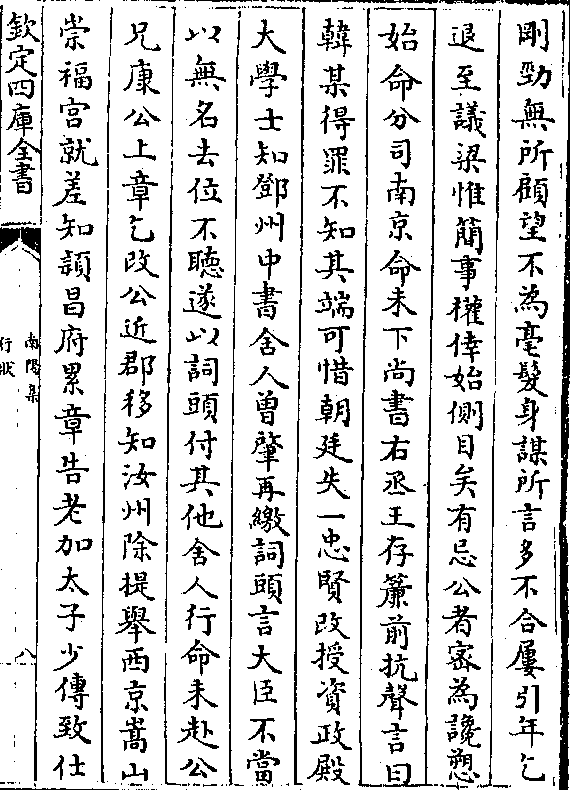 剛勁無所顧望不為毫髮身謀所言多不合屢引年乞
退至議梁惟簡事權倖始側目矣有忌公者密為讒愬
始命分司南京命未下尚書右丞王存簾前抗聲言曰
韓某得罪不知其端可惜朝廷失一忠賢改授資政殿
大學士知鄧州中書舍人曽肇再繳詞頭言大臣不當
以無名去位不聽遂以詞頭付其他舍人行命未赴公
兄康公上章乞改公近郡移知汝州除提舉西京嵩山
崇福宫就差知潁昌府累章告老加太子少傅致仕
欽定四庫全書
南陽集
行狀
八